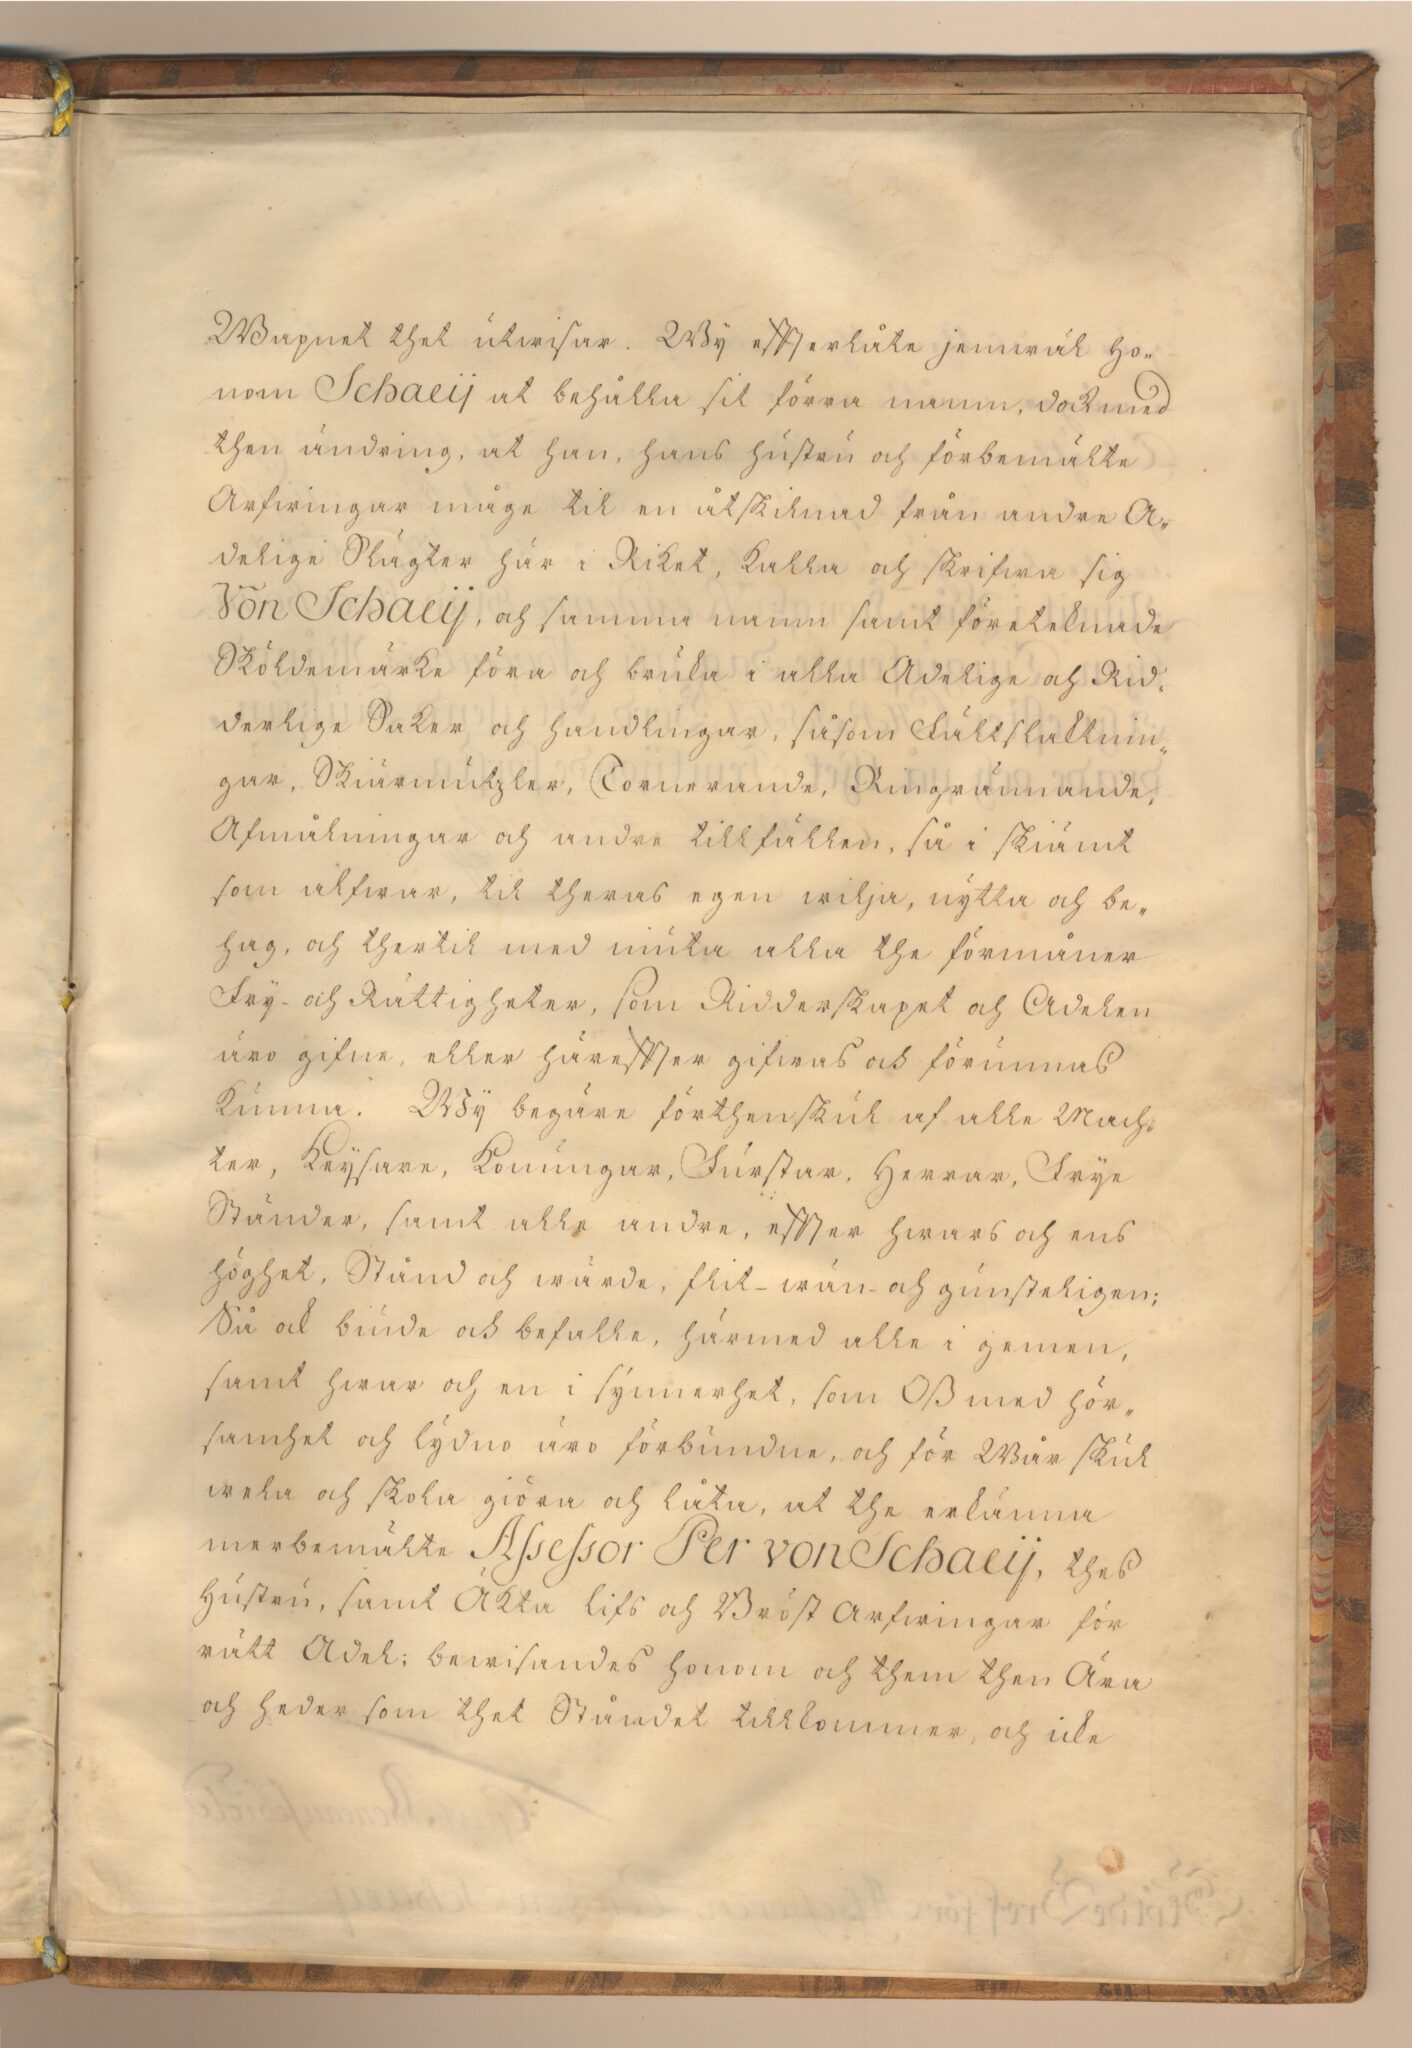 Wapnet thet utwisar. Wy effterlåte jemwäl ho-
nom Schaeij at behålla sit förra namn, dock med
then ändring, at han, hans hustru och förbemälte
Arfwingar måge til en åtskilnad från andre A-
delige Slägter här i Riket, kalla och skrifwa sig
Von Schaeij, och samma namn samt företeknade
Sköldemärke föra och bruka i alla Adelige och Rid-
derlige Saker och handlingar, såsom Fältslaktnin-
gar, Skiärmützler, Tornerande, Ringrännande,
Afmålningar och andre tillfällen, så i skiämt
som alfwar, til theras egen wilja, nytta och be-
hag, och thertil med niuta alla the förmåner
Fry- och Rättigheter, som Ridderskapet och Adelen
äro gifne, eller häreffter gifwas och förunnas
kunna. Wÿ begäre förthenskul af alle Mach-
ter, Keÿsare, Konungar, Furstar, Herrar, Frye
Ständer, samt alle andre, effter hwars och ens
höghet, Stånd och wärde, flit- wän- och gunsteligen;
Så ock biude och befalle, härmed alle i gemen,
samt hwar och en i synnerhet, som Oß med hör-
samhet och lydno äro förbundne, och för Wår skul
wela och skola giöra och låta, at the erkänna
merbemälte Assessor Per von Schaeij, thes
Hustru, samt Äkta lifs och Bröst Arfwingar för
rätt Adel; bewisandes honom och them then Ära
och heder som thet Ståndet tillkommer, och icke